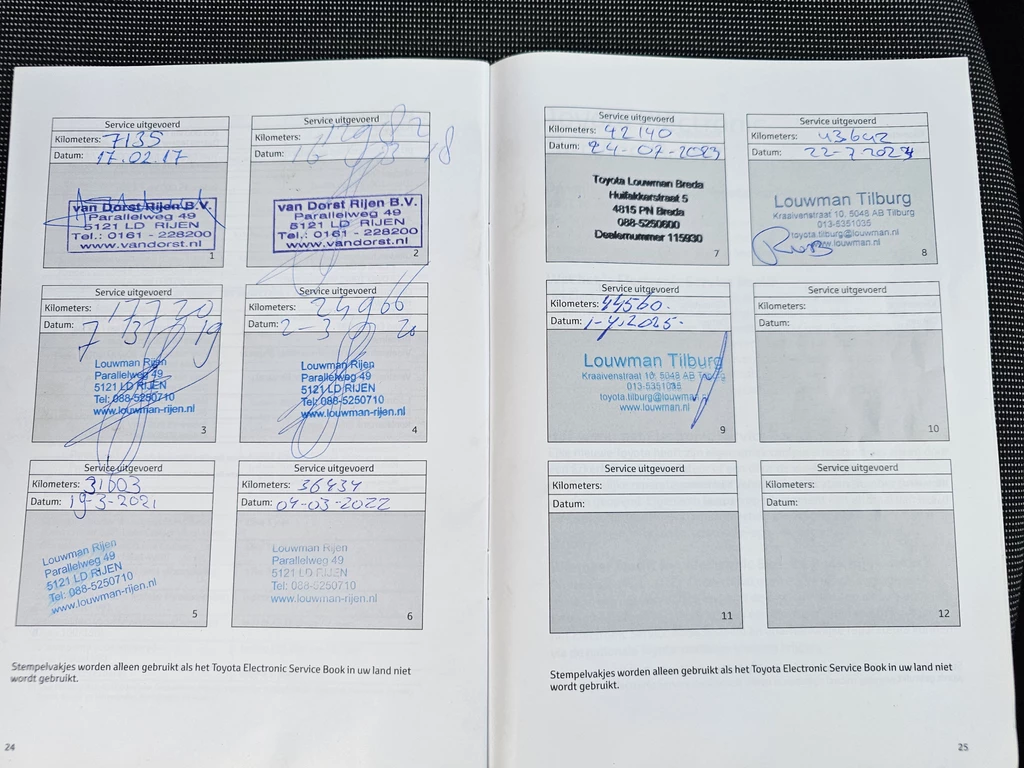 Service uitgevoerd
Kilometers: 7135
Datum: 17.02.17
van Dorst Rijen B.V.
Parallelweg 49
5121 LD RIJEN
Tel.: 0161 - 228200
www.vandorst.nl
1
Service uitgevoerd
Kilometers: 12982
Datum: 16 03 18
van Dorst Rijen B.V.
Parallelweg 49
5121 LD RIJEN
Tel.: 0161 - 228200
www.vandorst.nl
2
Service uitgevoerd
Kilometers: 17720
Datum: 7 3 19
Louwman Rijen
Parallelweg 49
5121 LD RIJEN
Tel: 088-5250710
www.louwman-rijen.nl
3
Service uitgevoerd
Kilometers: 24966
Datum: 2-3 20
Louwman Rijen
Parallelweg 49
5121 LD RIJEN
Tel: 088-5250710
www.louwman-rijen.nl
4
Service uitgevoerd
Kilometers: 31603
Datum: 19-3-2021
Louwman Rijen
Parallelweg 49
5121 LD RIJEN
Tel: 088-5250710
www.louwman-rijen.nl
5
Service uitgevoerd
Kilometers: 36434
Datum: 04-03-2022
Louwman Rijen
Parallelweg 49
5121 LD RIJEN
Tel: 088-5250710
www.louwman-rijen.nl
6
Stempelvakjes worden alleen gebruikt als het Toyota Electronic Service Book in uw land niet
wordt gebruikt.
24
Service uitgevoerd
Kilometers: 42140
Datum: 24-07-2023
Toyota Louwman Breda
Huifakkerstraat 5
4815 PN Breda
088-5250600
Dealernummer 115930
7
Service uitgevoerd
Kilometers: 43642
Datum: 22-7-2024
Louwman Tilburg
Kraaivenstraat 10, 5048 AB Tilburg
013-5351035
toyota.tilburg@louwman.nl
www.louwman.nl
8
Service uitgevoerd
Kilometers: 44560.
Datum: 1-4-2025.
Louwman Tilburg
Kraaivenstraat 10, 5048 AB Tilburg
013-5351035
toyota.tilburg@louwman.nl
www.louwman.nl
9
Service uitgevoerd
Kilometers:
Datum:
10
Service uitgevoerd
Kilometers:
Datum:
11
Service uitgevoerd
Kilometers:
Datum:
12
Stempelvakjes worden alleen gebruikt als het Toyota Electronic Service Book in uw land niet
wordt gebruikt.
25